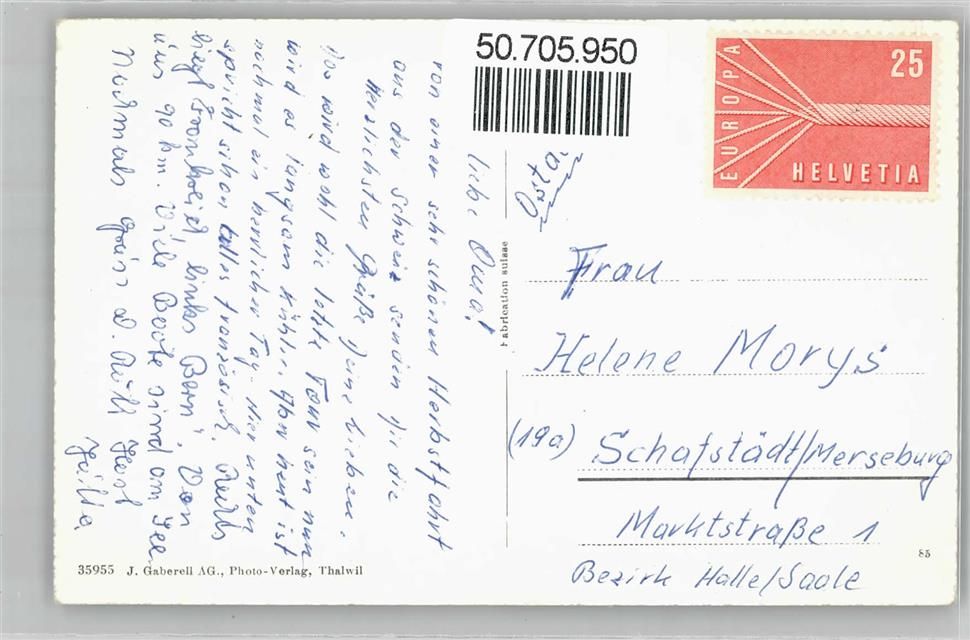 50.705.950
EUROPA
25
HELVETIA
Liebe Oma!
von einer sehr schönen Herbstfahrt
aus der Schweiz senden Dir die
Herzlichsten Grüße Deine lieben.
Das wird wohl die letzte Tour sein nun
wird es langsam kühler. Aber heut ist
nochmal ein herrlicher Tag. Hier unten
spricht schon alles französisch. Rechts
liegt links Bern". Von
uns 90 km. Viele Boote sind am See
Nochmals
Jutta
Fabrication suisse
Frau
Helene Morys
(19a) Schafstädt/Merseburg
Marktstraße 1
Bezirk Halle/Saale
85
35955 J. Gaberell AG., Photo-Verlag, Thalwil